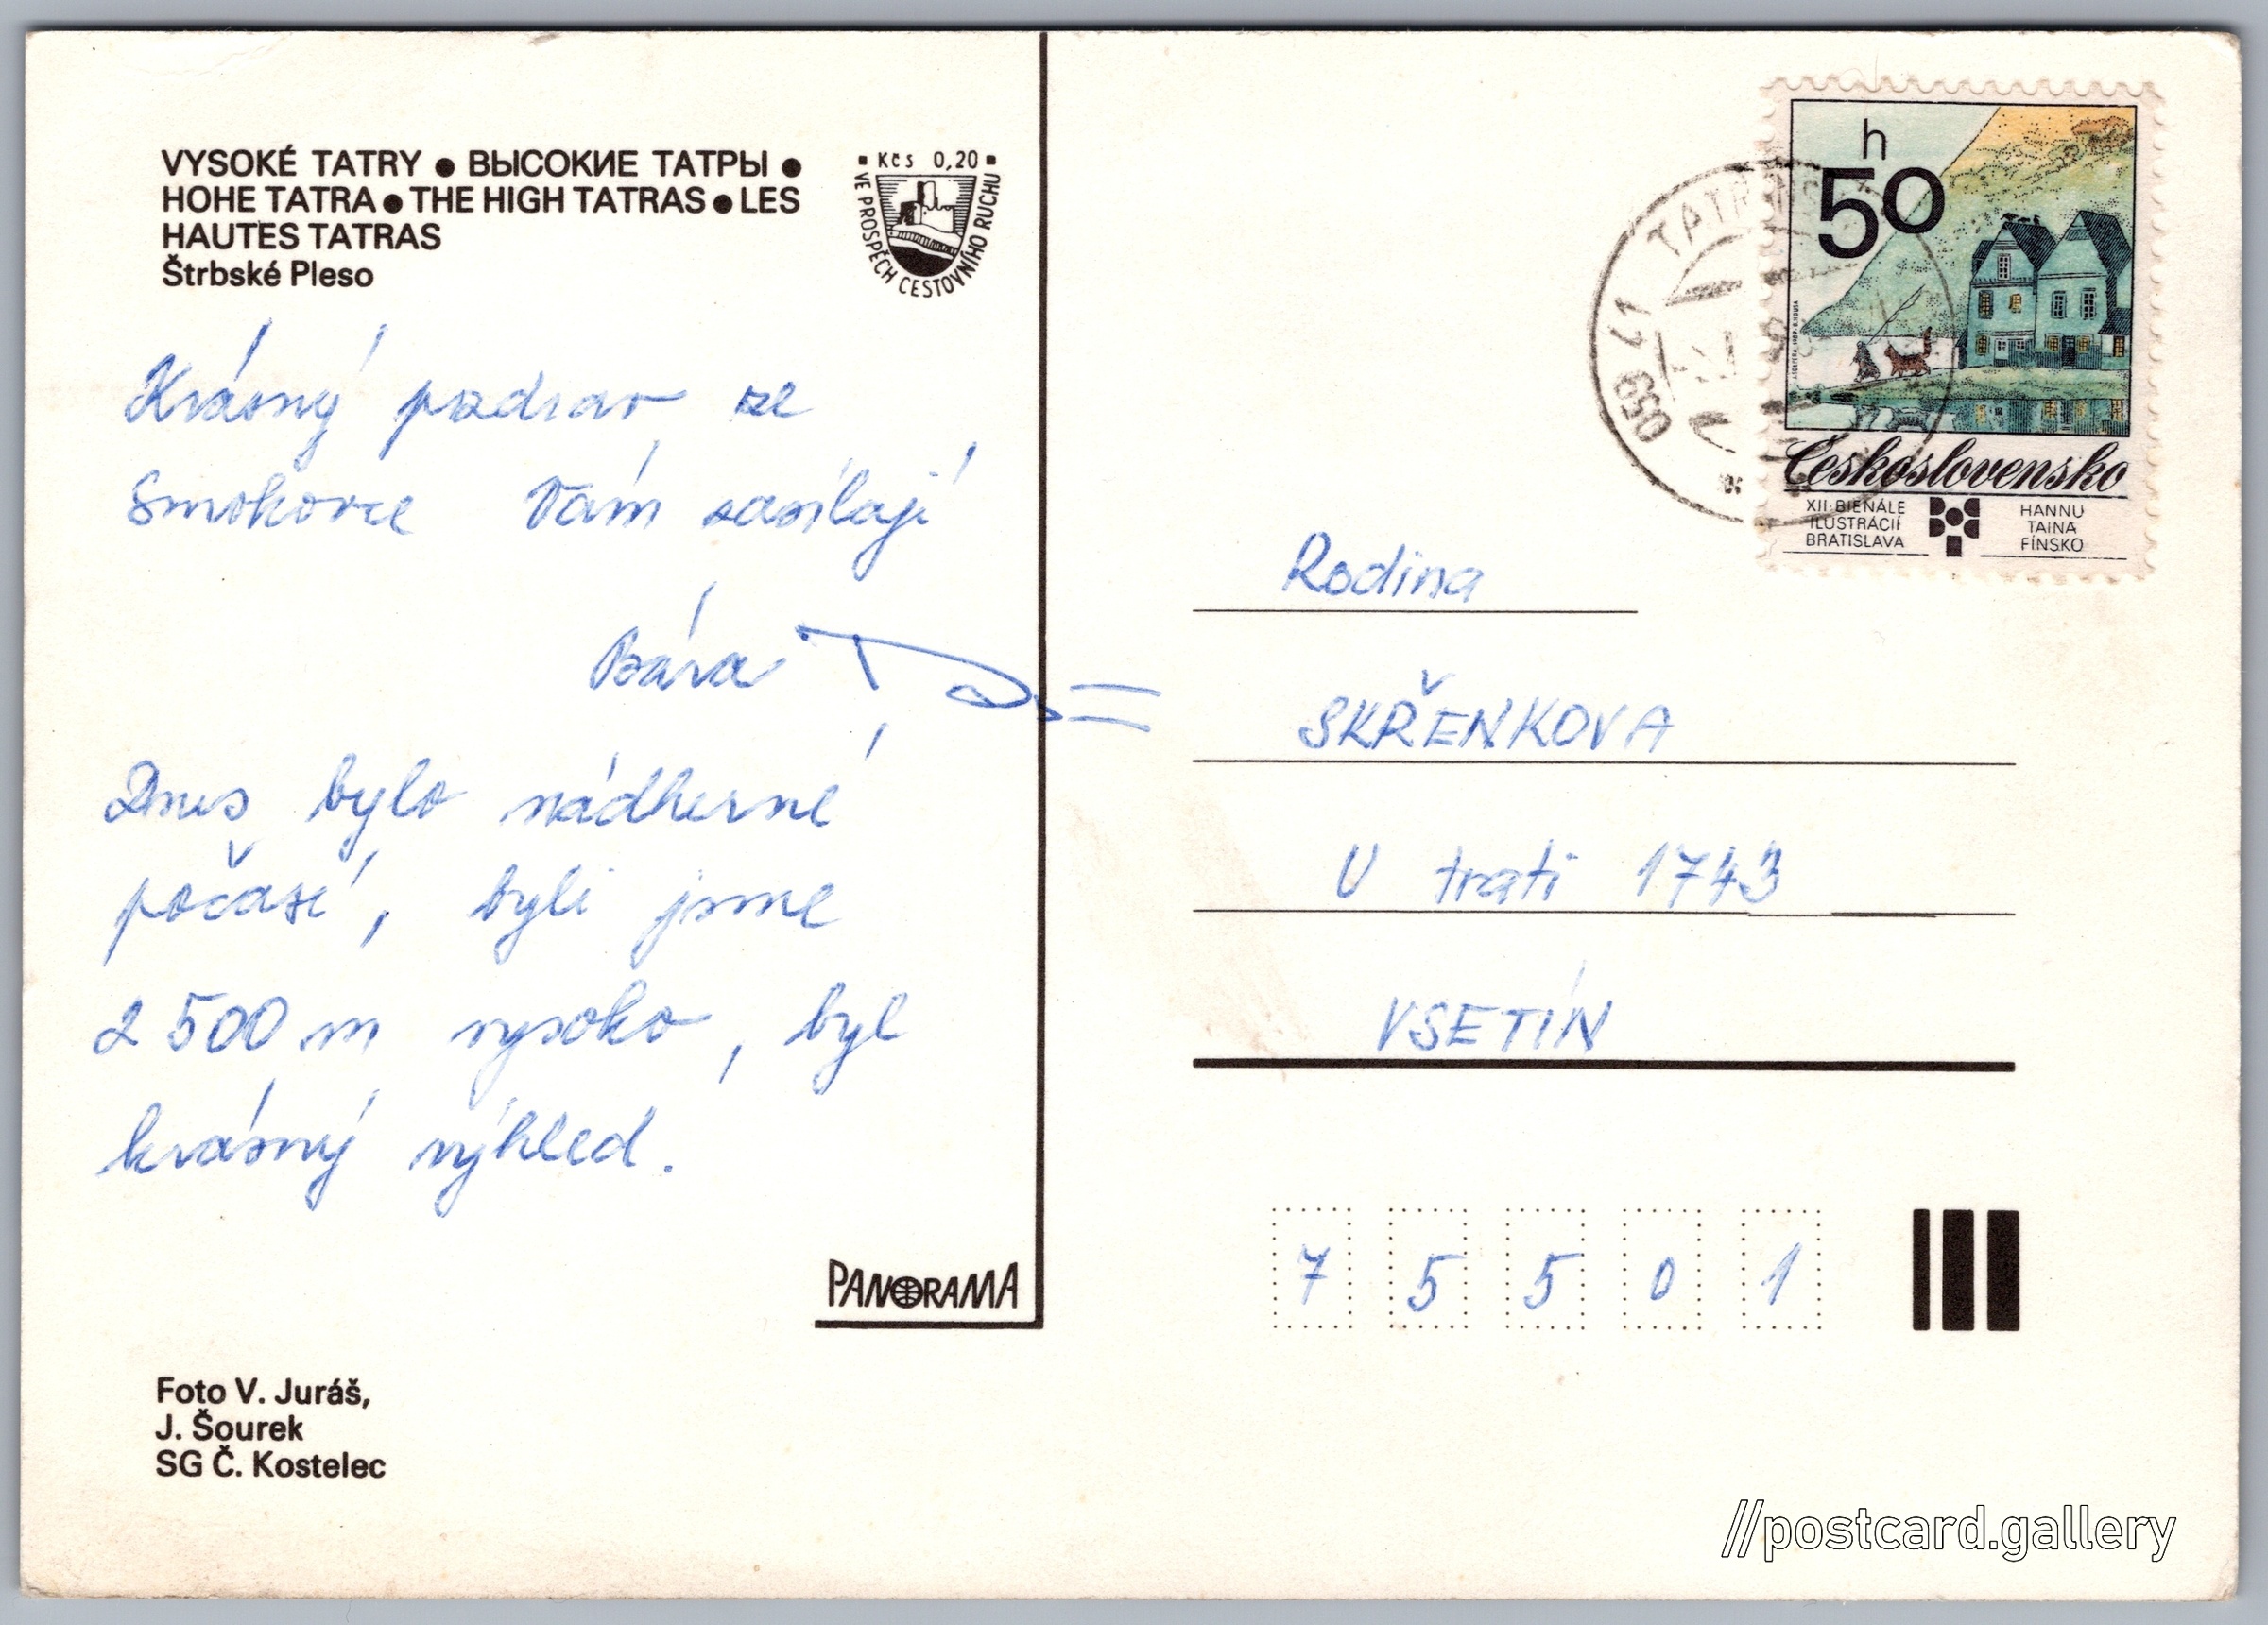 VYSOKÉ TATRY ● ВЫСОКИЕ ТАТРЫ ●
HOHE TATRA ● THE HIGH TATRAS ● LES
HAUTES TATRAS
Štrbské Pleso
▪ Kčs 0,20 ▪
VE PROSPĚCH CESTOVNÍHO RUCHU
Krásný pozdrav ze
Smokovce Vám zasílají
Bára
Dnes bylo nádherné
počasí, byli jsme
2 500 m vysoko, byl
krásný výhled.
PANORAMA
Foto V. Juráš,
J. Šourek
SG Č. Kostelec
h
50
Československo
XII. BIENÁLE
ILUSTRÁCIÍ
BRATISLAVA
HANNU
TAINA
FÍNSKO
059 41
Rodina
SKŘENKOVA
U trati 1743
VSETÍN
7 5 5 0 1
//postcard.gallery